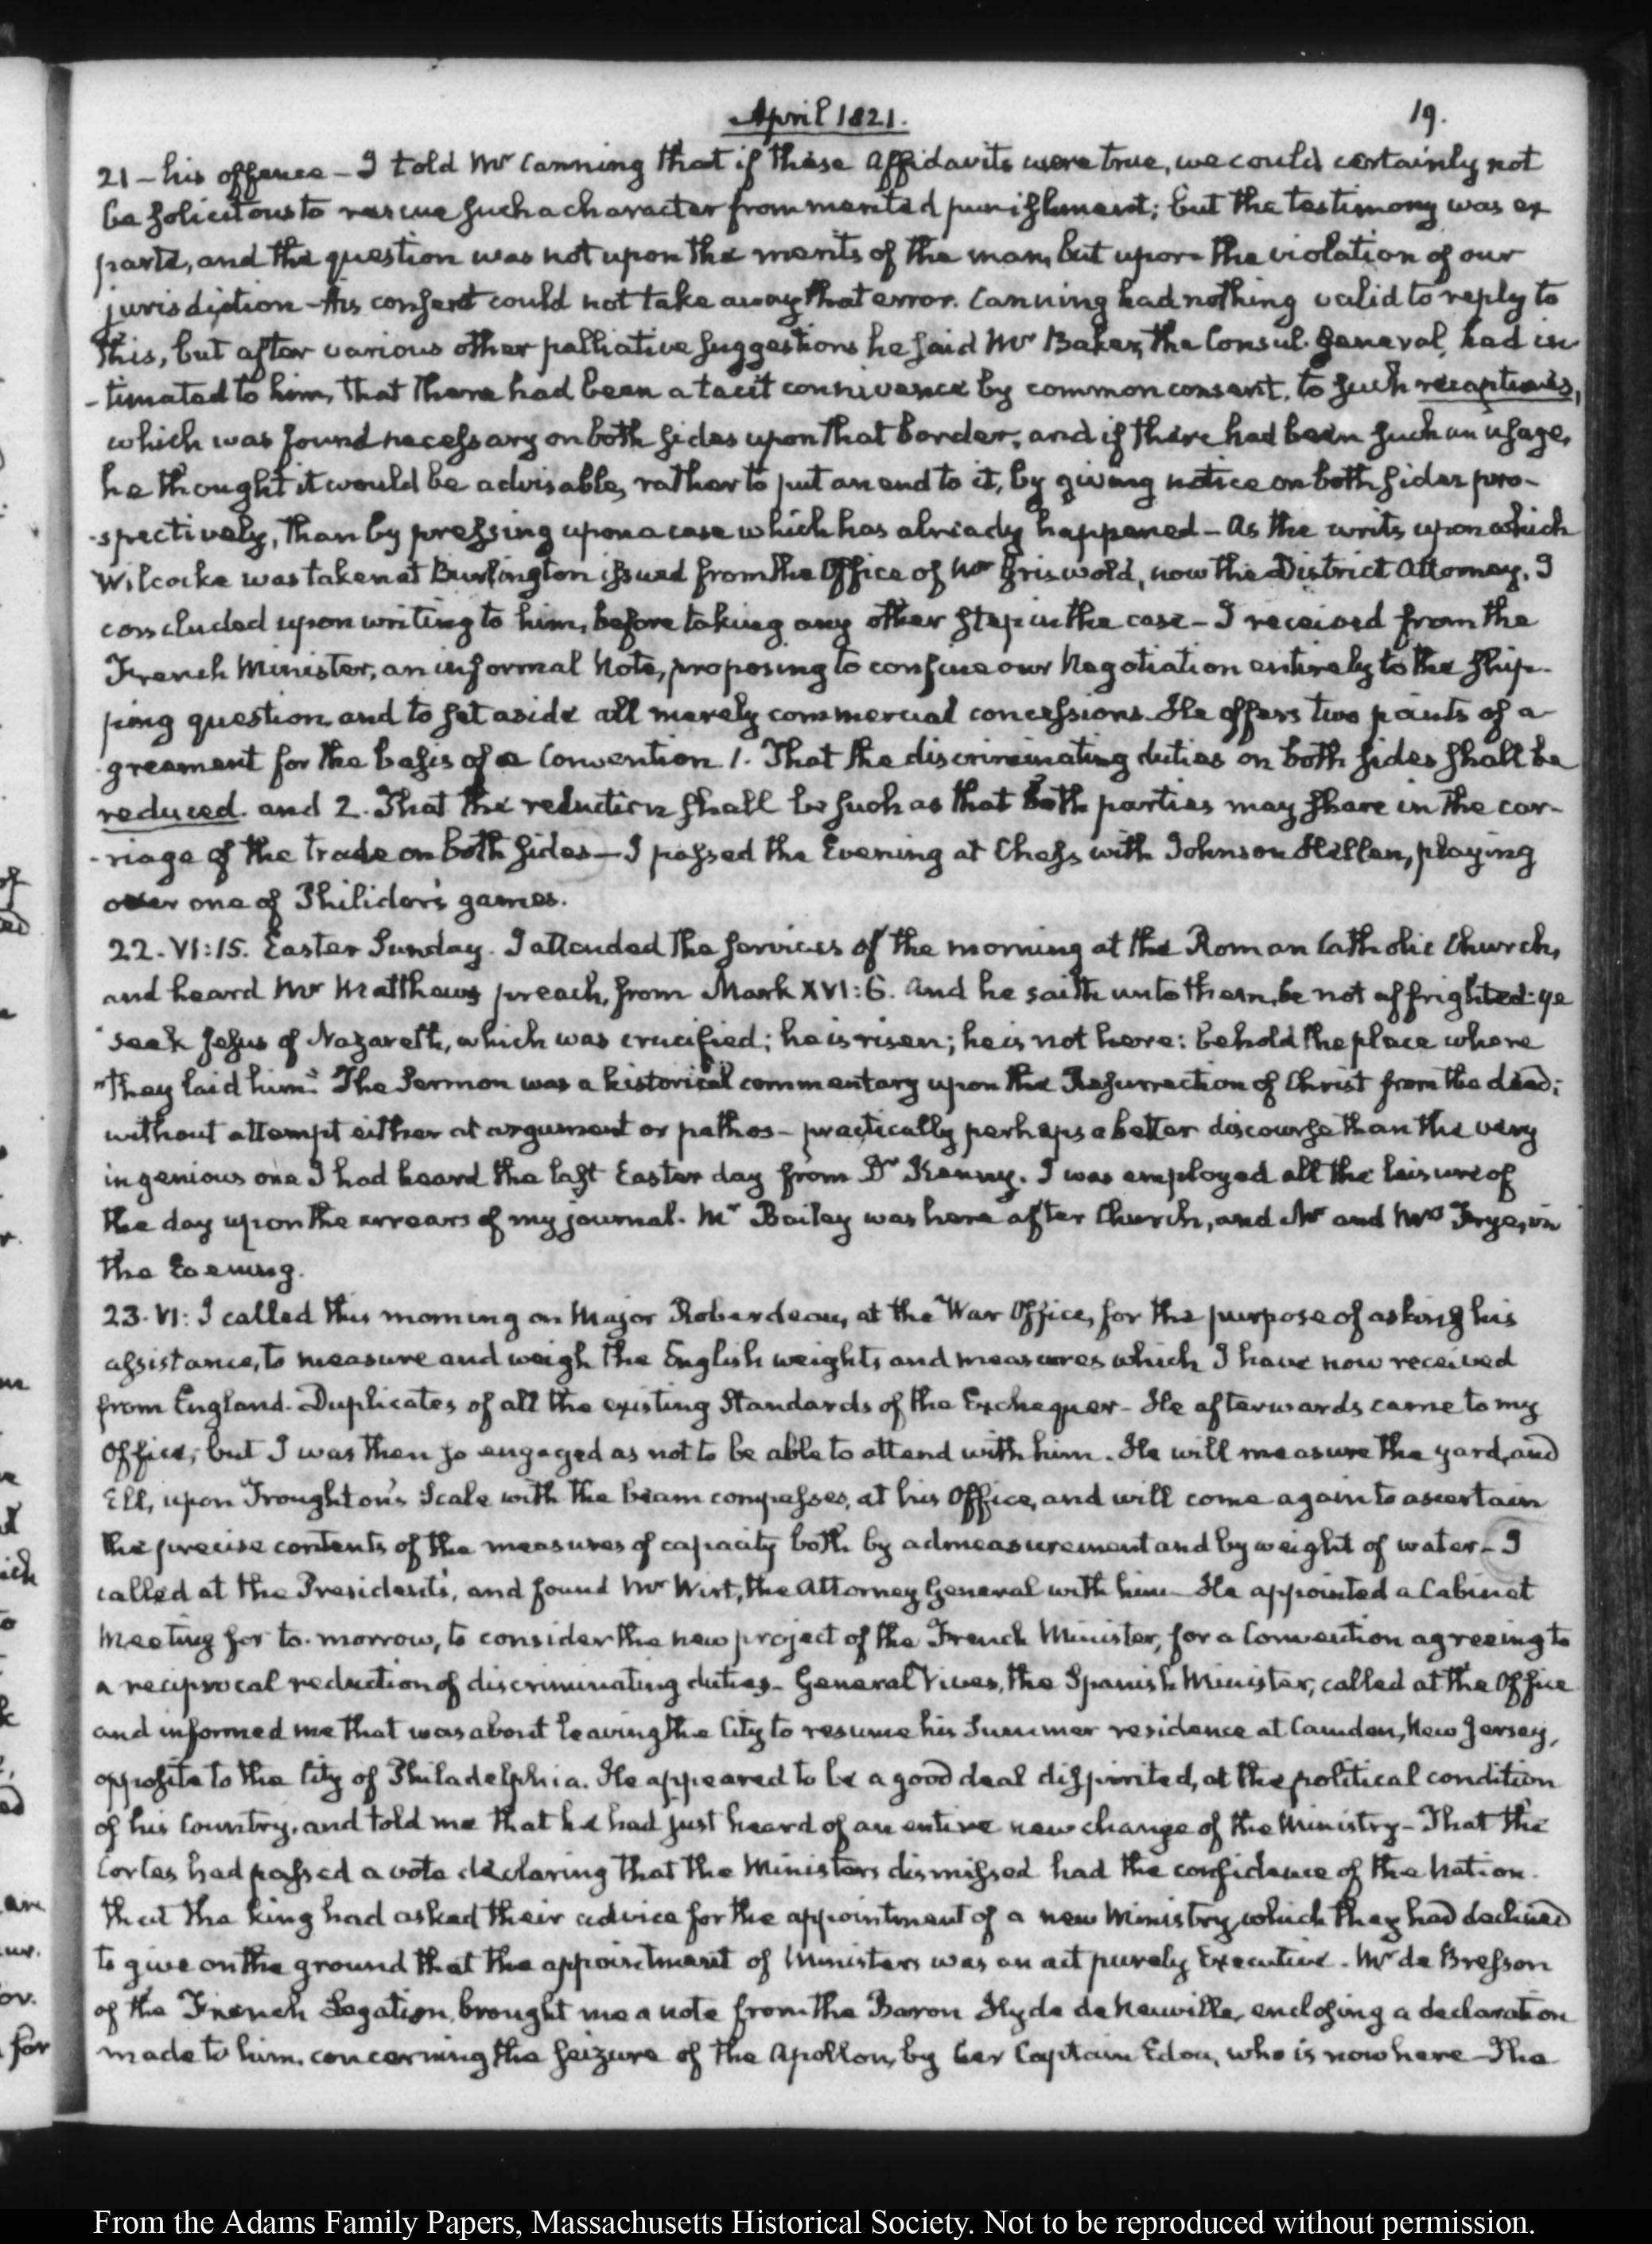 April 1821.
19.
21 – his offence – I told Mr Canning that if these Affidavits were true, we could certainly not
be solicitous to rescue such a character from merited punishment; but the testimony was ex
parte, and the question was not upon the merits of the man, but upon the violation of our
jurisdiction – His consent could not take away that error. Canning had nothing valid to reply to
this, but after various other palliative suggestions he said Mr Baker, the Consul General, had in
-timated to him, that there had been a tacit connivance by common consent, to such recaptures,
which was found necessary on both sides upon that border, and if there had been such an usage,
he thought it would be advisable, rather to put an end to it, by giving notice on both sides pro-
-spectively, than by pressing upon a case which has already happened – As the writs upon which
Wilcocke was taken at Burlington issued from the Office of Mr Griswold, now the District Attorney, I
concluded upon writing to him, before taking any other step in the case – I received from the
French Minister, an informal Note, proposing to confine our Negotiation entirely to the ship-
ping question and to set aside all merely commercial concessions. He offers two points of a-
greement for the basis of a Convention 1. That the discriminating duties on both sides shall be
reduced. and 2. That the reduction shall be such as that both parties may share in the car-
-riage of the trade on both sides – I passed the Evening at Chess with Johnson Hellen, playing
over one of Philidor's games.
22. VI:15. Easter Sunday. I attended the services of the morning at the Roman Catholic Church,
and heard Mr Matthews preach, from Mark XVI:6. And he saith unto them, be not affrighted: ye
"seek Jesus of Nazareth, which was crucified; he is risen; he is not here: behold the place where
"they laid him." The Sermon was a historical commentary upon the Resurrection of Christ from the dead;
without attempt either at argument or pathos – practically perhaps a better discourse than the very
ingenious one I had heard the last Easter day from Dr Kenny. I was employed all the leisure of
the day upon the arrears of my journal. Mr Bailey was here after Church, and Mr and Mrs Frye, in
the Evening.
23. VI: I called this morning on Major Roberdeau, at the War Office, for the purpose of asking his
assistance, to measure and weigh the English weights and measures which I have now received
from England. Duplicates of all the existing Standards of the Exchequer – He afterwards came to my
Office; but I was then so engaged as not to be able to attend with him. He will measure the yard, and
Ell, upon Troughton's Scale with the beam compasses, at his Office, and will come again to ascertain
the precise contents of the measures of capacity both by admeasurement and by weight of water – I
called at the President's, and found Mr Wirt, the Attorney General with him – He appointed a Cabinet
Meeting for to-morrow, to consider the new project of the French Minister, for a Convention agreeing to
a reciprocal reduction of discriminating duties – General Vives, the Spanish Minister, called at the Office
and informed me that was about leaving the City to resume his Summer residence at Camden, New Jersey,
opposite to the City of Philadelphia. He appeared to be a good deal dispirited, at the political condition
of his Country, and told me that he had just heard of an entire new change of the Ministry – That the
Cortes had passed a vote declaring that the Ministers dismissed had the confidence of the Nation.
that the king had asked their advice for the appointment of a new Ministry, which they had declined
to give on the ground that the appointment of Ministers was an act purely Executive. Mr de Bresson
of the French Legation, brought me a note from the Baron Hyde de Neuville, enclosing a declaration
made to him, concerning the seizure of the Apollon, by her Captain Edou, who is now here – The
From the Adams Family Papers, Massachusetts Historical Society. Not to be reproduced without permission.